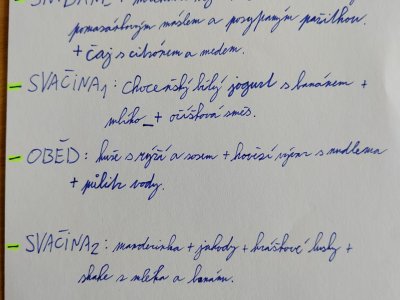 pomazánkovým máslem a posypaným pažitkou.
+ čaj s citrónem a medem.
- SVAČINA1: Choceňský bílý jogurt s banánem +
mlíko_+ oříšková směs.
- OBĚD: kuře s rýží a sosem + hovězí vývar s nudlema
+ půllitr vody.
- SVAČINA2: mandarinka + jahody + hráškové lusky +
shake s mléka a banánu.